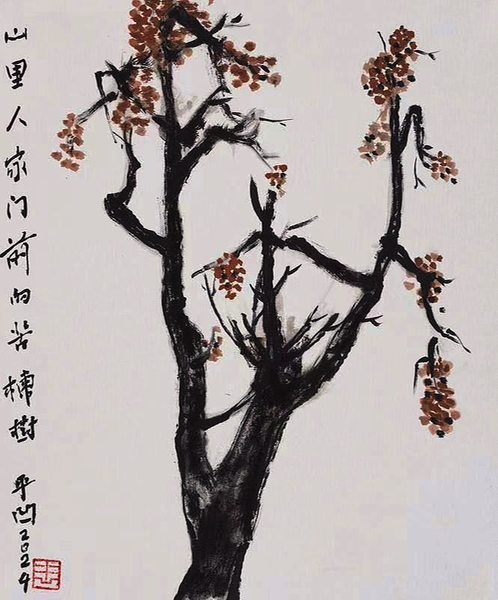 山里人家门前的苦楝樹 平凹 2024